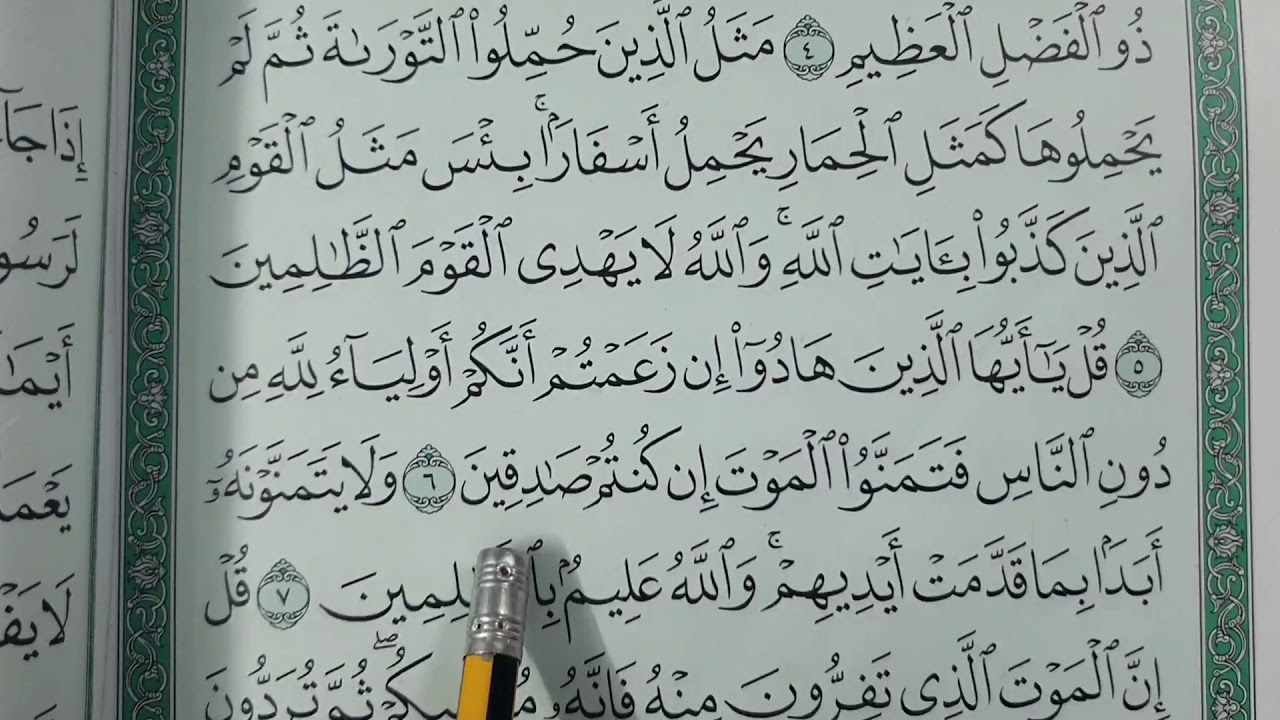 ذُو ٱلْفَضْلِ ٱلْعَظِيمِ ٤ مَثَلُ ٱلَّذِينَ حُمِّلُوا۟ ٱلتَّوْرَىٰةَ ثُمَّ لَمْ
يَحْمِلُوهَا كَمَثَلِ ٱلْحِمَارِ يَحْمِلُ أَسْفَارَۢا ۚ بِئْسَ مَثَلُ ٱلْقَوْمِ
ٱلَّذِينَ كَذَّبُوا۟ بِـَٔايَـٰتِ ٱللَّهِ ۚ وَٱللَّهُ لَا يَهْدِى ٱلْقَوْمَ ٱلظَّـٰلِمِينَ
٥ قُلْ يَـٰٓأَيُّهَا ٱلَّذِينَ هَادُوٓا۟ إِن زَعَمْتُمْ أَنَّكُمْ أَوْلِيَآءُ لِلَّهِ مِن
دُونِ ٱلنَّاسِ فَتَمَنَّوُا۟ ٱلْمَوْتَ إِن كُنتُمْ صَـٰدِقِينَ ٦ وَلَا يَتَمَنَّوْنَهُۥٓ
أَبَدَۢا بِمَا قَدَّمَتْ أَيْدِيهِمْ ۚ وَٱللَّهُ عَلِيمُۢ ٧ قُلْ
إِنَّ ٱلْمَوْتَ ٱلَّذِى تَفِرُّونَ مِنْهُ فَإِنَّهُۥ ثُمَّ تُرَدُّونَ
إِذَا